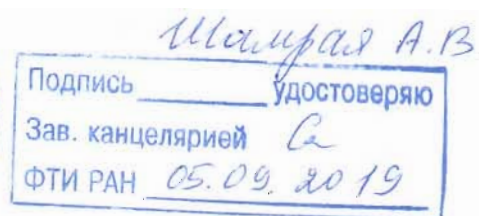 Шамрая А.В
Подпись удостоверяю
Зав. канцелярией
ФТИ РАН 05.09.2019